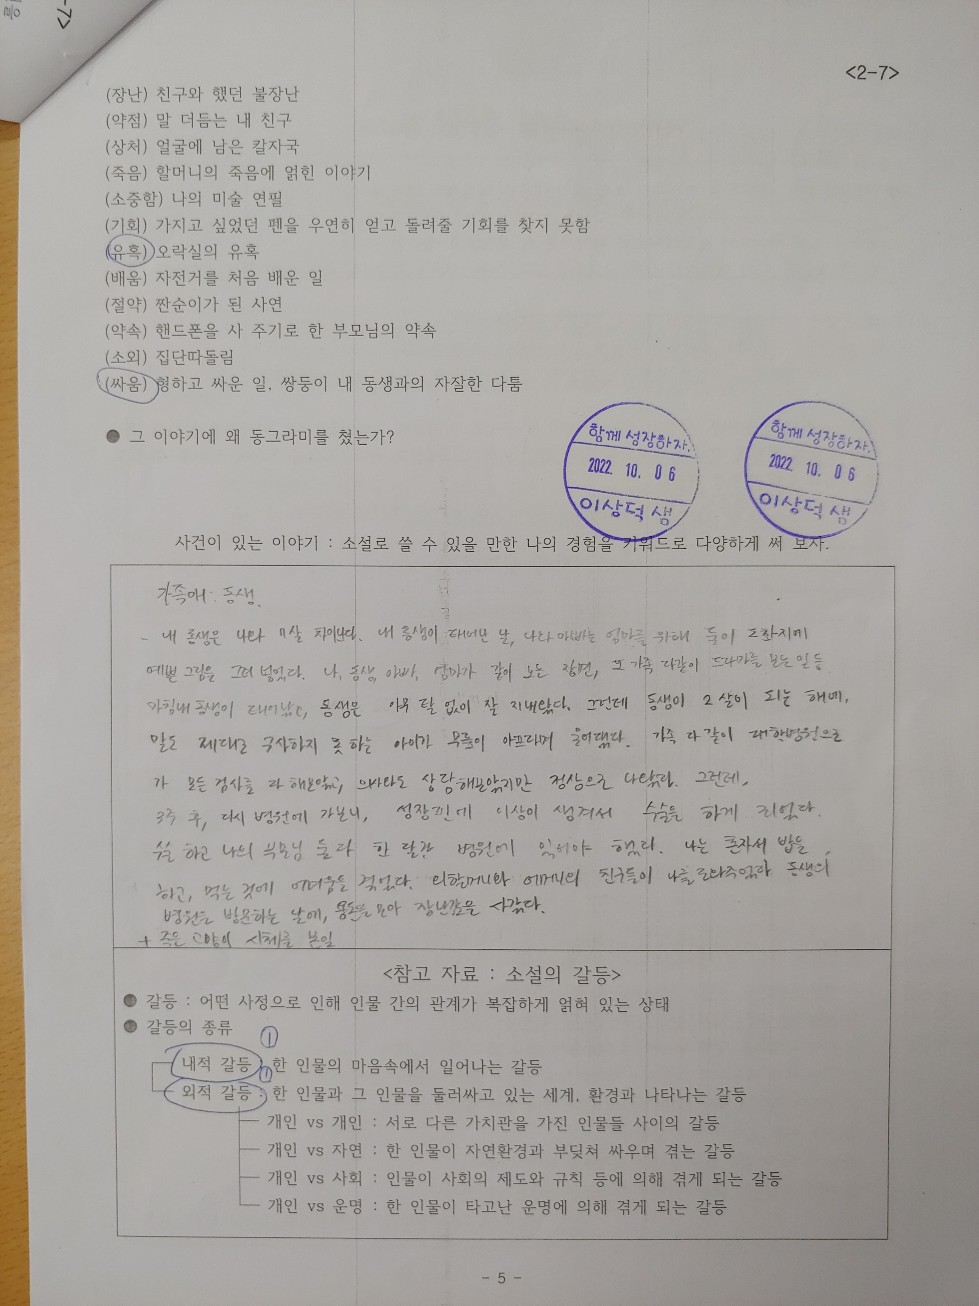 <2-7>
(장난) 친구와 했던 불장난
(약점) 말 더듬는 내 친구
(상처) 얼굴에 남은 칼자국
(죽음) 할머니의 죽음에 얽힌 이야기
(소중함) 나의 미술 연필
(기회) 가지고 싶었던 펜을 우연히 얻고 돌려줄 기회를 찾지 못함
(유혹) 오락실의 유혹
(배움) 자전거를 처음 배운 일
(절약) 짠순이가 된 사연
(약속) 핸드폰을 사 주기로 한 부모님의 약속
(소외) 집단따돌림
(싸움) 형하고 싸운 일. 쌍둥이 내 동생과의 자잘한 다툼
● 그 이야기에 왜 동그라미를 쳤는가?
함께 성장하자.
2022. 10. 06
이상덕 샘
함께 성장하자.
2022. 10. 06
이상덕 샘
사건이 있는 이야기 : 소설로 쓸 수 있을 만한 나의 경험을 키워드로 다양하게 써 보자.
가족애: 동생.
- 내 동생은 나와 11살 차이난다. 내 동생이 태어난 날, 나와 아빠는 엄마를 위해 둘이 도화지에
예쁜 그림을 그려 넣었다. 나, 동생, 아빠, 엄마가 같이 노는 장면, 또 가족 다같이 드라마를 보는 일 등
마침내 동생이 태어났고, 동생은 아무 탈 없이 잘 지내왔다. 그런데 동생이 2살이 되는 해에,
말도 제대로 구사하지 못하는 아이가 무릎이 아프다며 울어댔다. 가족 다같이 대학병원으로
가 모든 검사를 다 해보았고, 의사와도 상담해보았지만 정상으로 나왔다. 그런데,
3주 후, 다시 병원에 가보니, 성장판에 이상이 생겨서 수술을 하게 되었다.
수술 하고 나의 부모님 둘 다 한 달간 병원에 있어야 했다. 나는 혼자서 밥을
하고, 먹는 것에 어려움을 겪었다. 외할머니와 어머니의 친구들이 나를 도와주었고 동생의
병원을 방문하는 날에, 용돈을 모아 장난감을 사갔다.
+ 죽은 고양이 시체를 본일
<참고 자료 : 소설의 갈등>
● 갈등 : 어떤 사정으로 인해 인물 간의 관계가 복잡하게 얽혀 있는 상태
● 갈등의 종류
내적 갈등 : 한 인물의 마음속에서 일어나는 갈등
외적 갈등 : 한 인물과 그 인물을 둘러싸고 있는 세계. 환경과 나타나는 갈등
개인 vs 개인 : 서로 다른 가치관을 가진 인물들 사이의 갈등
개인 vs 자연 : 한 인물이 자연환경과 부딪쳐 싸우며 겪는 갈등
개인 vs 사회 : 인물이 사회의 제도와 규칙 등에 의해 겪게 되는 갈등
개인 vs 운명 : 한 인물이 타고난 운명에 의해 겪게 되는 갈등
- 5 -